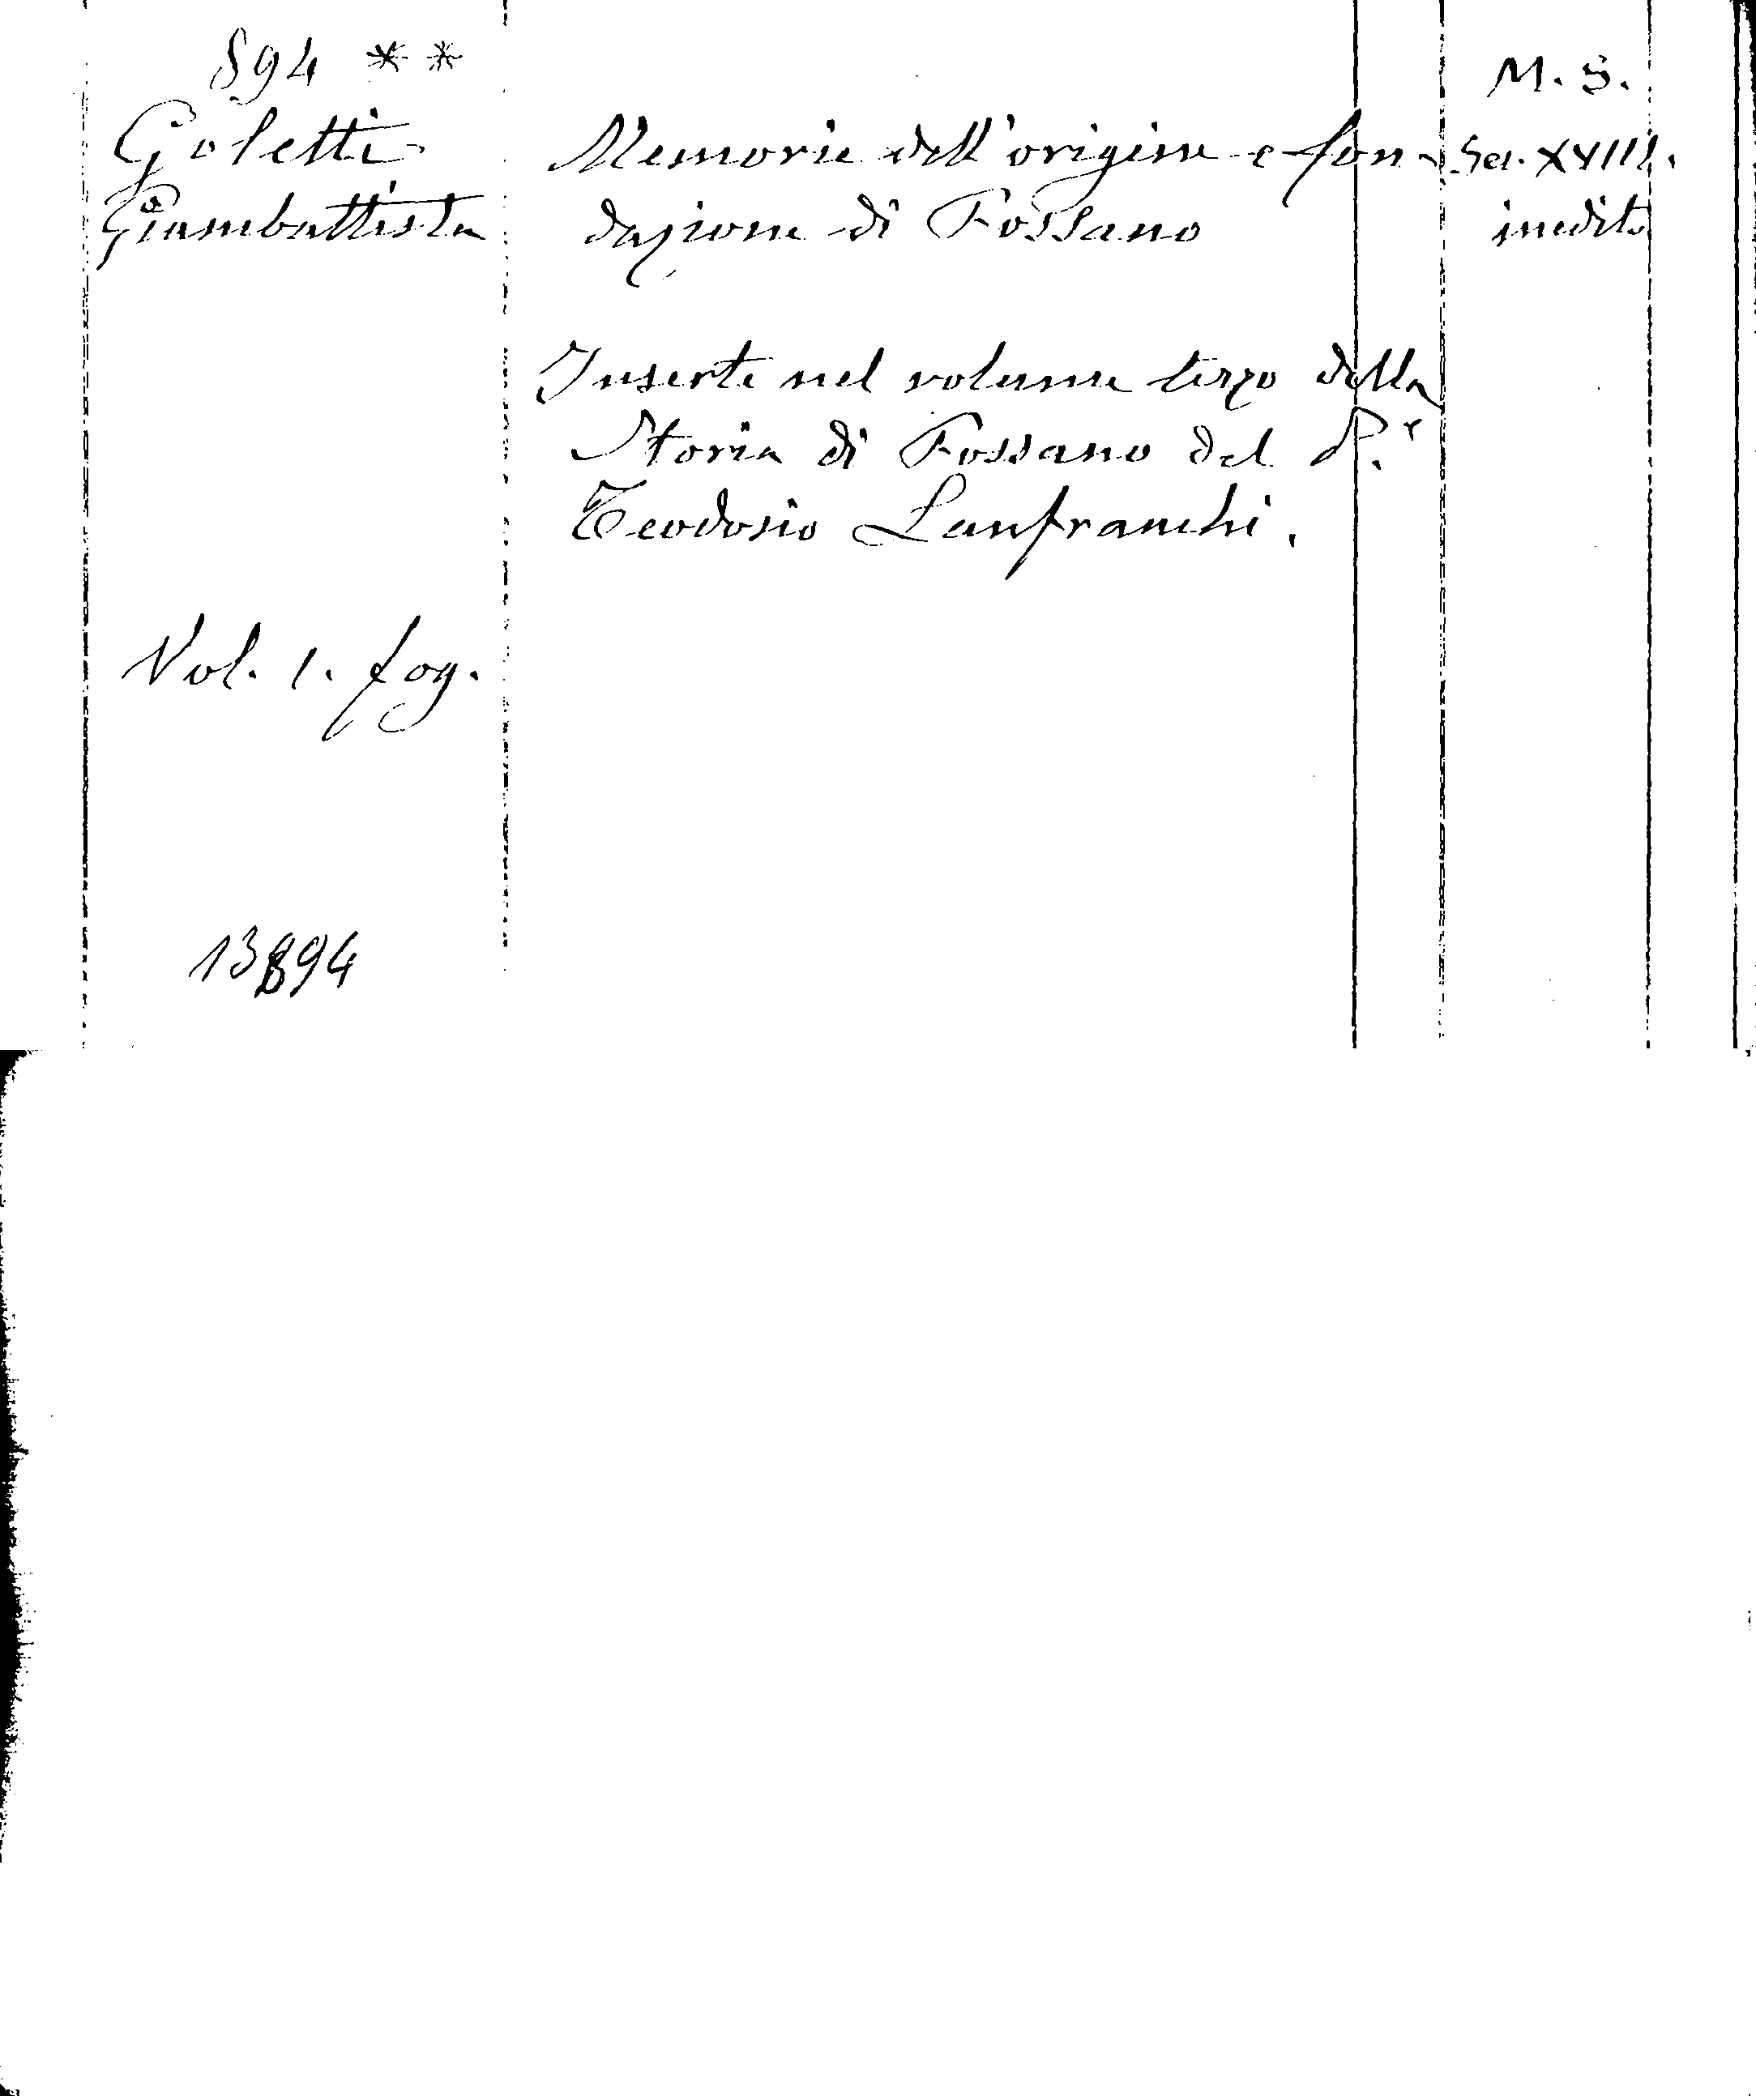 894 **
M. S.
Goletti
Giambattista
Memorie dell'origine e fon-
dazione di Fossano
Sec. XVIII.
inedito
Inserte nel volume terzo della
Storia di Fossano del P.r
Teodosio Lanfranchi.
Vol. 1. fog.
13894